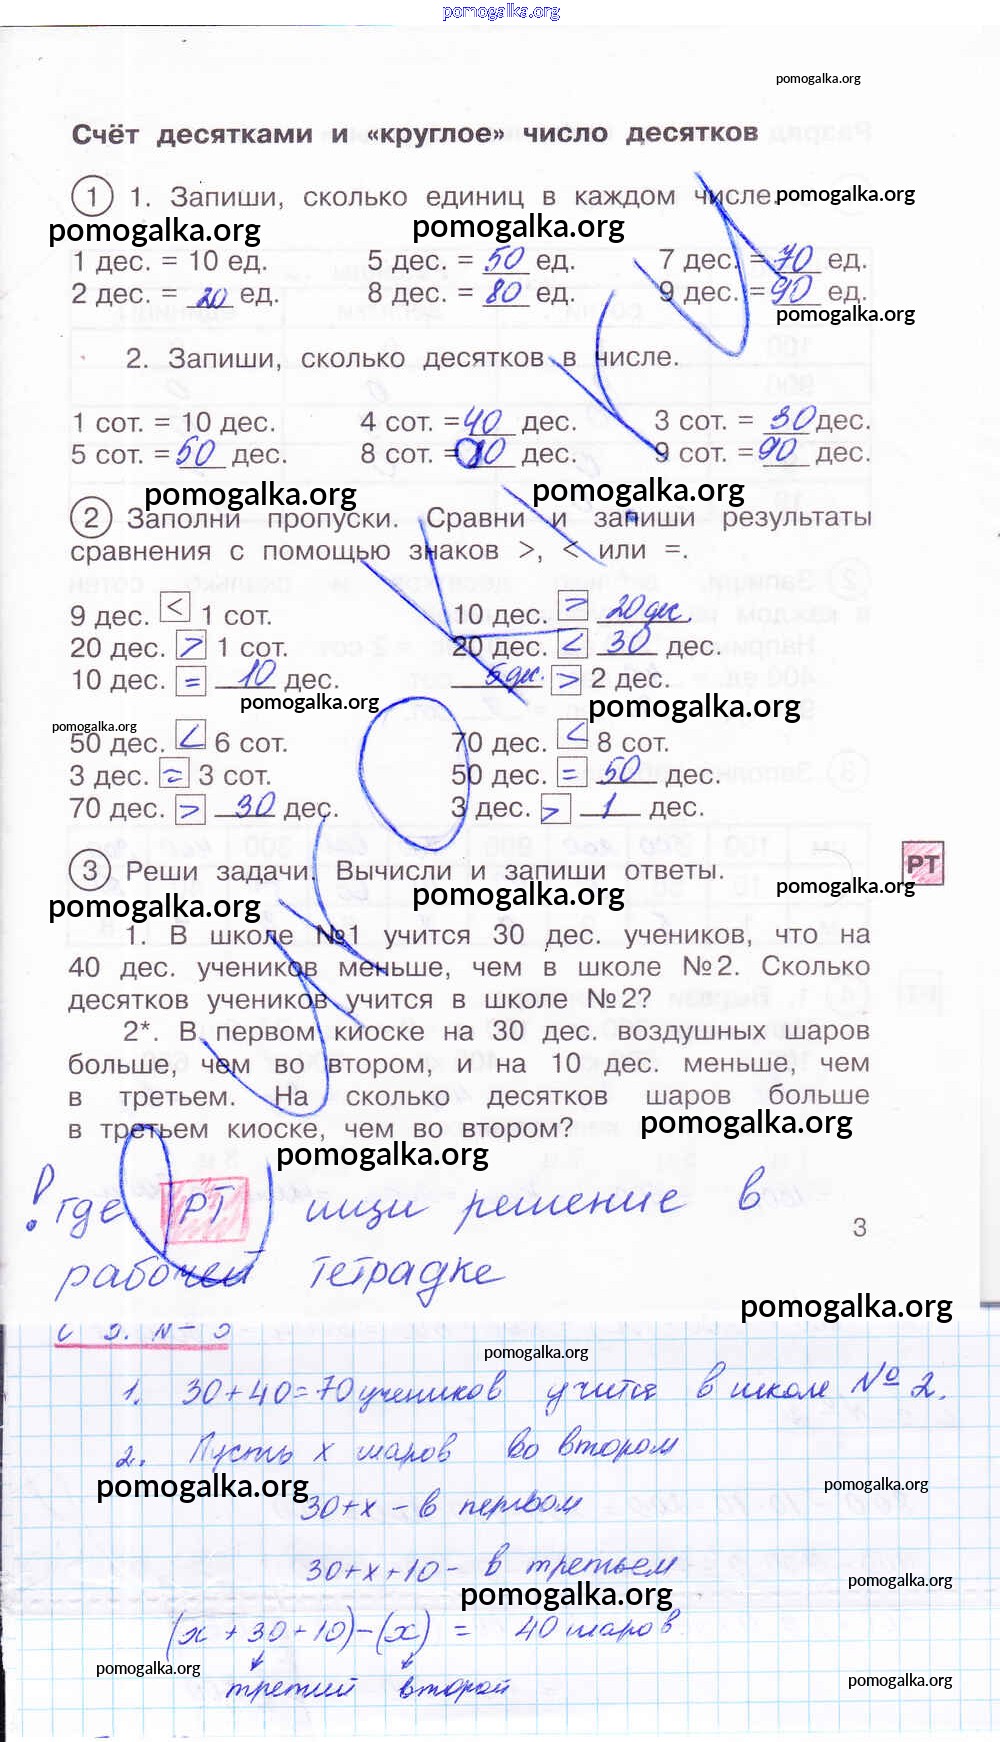 pomogalka.org
pomogalka.org
Счёт десятками и «круглое» число десятков
1 1. Запиши, сколько единиц в каждом числе.
pomogalka.org
pomogalka.org pomogalka.org
1 дес. = 10 ед. 5 дес. = 50 ед. 7 дес. = 70 ед.
2 дес. = 20 ед. 8 дес. = 80 ед. 9 дес. = 90 ед.
pomogalka.org
2. Запиши, сколько десятков в числе.
1 сот. = 10 дес. 4 сот. = 40 дес. 3 сот. = 30 дес.
5 сот. = 50 дес. 8 сот. = 80 дес. 9 сот. = 90 дес.
pomogalka.org pomogalka.org
2 Заполни пропуски. Сравни и запиши результаты
сравнения с помощью знаков >, < или =.
9 дес. < 1 сот. 10 дес. = 20 дес.
20 дес. > 1 сот. 20 дес. < 30 дес.
10 дес. = 10 дес. 5 дес. > 2 дес.
pomogalka.org pomogalka.org
pomogalka.org
50 дес. < 6 сот. 70 дес. < 8 сот.
3 дес. = 3 сот. 50 дес. = 50 дес.
70 дес. > 30 дес. 3 дес. > 1 дес.
УКОККИКИ
3 Реши задачи. Вычисли и запиши ответы.
РТ
pomogalka.org pomogalka.org pomogalka.org
1. В школе №1 учится 30 дес. учеников, что на
40 дес. учеников меньше, чем в школе №2. Сколько
десятков учеников учится в школе №2?
2*. В первом киоске на 30 дес. воздушных шаров
больше, чем во втором, и на 10 дес. меньше, чем
в третьем. На сколько десятков шаров больше
в третьем киоске, чем во втором?
pomogalka.org
pomogalka.org
! Где РТ ищи решение в
3
рабочей тетрадке
pomogalka.org
С 3. N-3
pomogalka.org
1. 30+40=70 учеников учится в школе № 2.
2. Пусть х шаров во втором
pomogalka.org pomogalka.org
30+х - в первом
30+х+10 - в третьем
pomogalka.org
pomogalka.org
(х + 30 + 10) - (х) = 40 шаров
pomogalka.org
третий второй
pomogalka.org